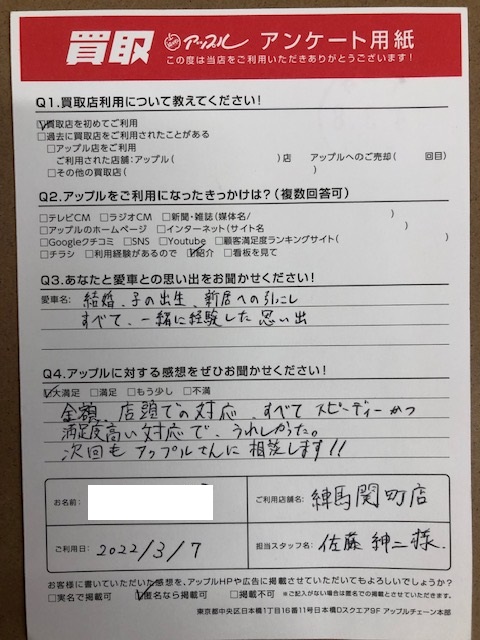 買取 アップル アンケート用紙
この度は当店をご利用いただきありがとうございます！
Q1.買取店利用について教えてください！
☑買取店を初めてご利用
□過去に買取店をご利用されたことがある
□アップル店をご利用
ご利用された店舗：アップル（ ）店 アップルへのご売却（ 回目）
□その他の買取店（ ）
Q2.アップルをご利用になったきっかけは？（複数回答可）
□テレビCM □ラジオCM □新聞・雑誌（媒体名/ ）
□アップルのホームページ □インターネット（サイト名 ）
□Googleクチコミ □SNS □Youtube □顧客満足度ランキングサイト（ ）
□チラシ □利用経験があるので ☑紹介 □看板を見て
Q3.あなたと愛車との思い出をお聞かせください！
愛車名： 結婚、子の出生、新居への引こし
すべて、一緒に経験した思い出
Q4.アップルに対する感想をぜひお聞かせください！
☑大満足 □満足 □もう少し □不満
金額、店頭での対応、すべてスピーディーかつ
満足度高い対応で、うれしかった。
次回もアップルさんに相談します!!
お名前：
ご利用店舗名： 練馬関町店
ご利用日： 2022/3/7
担当スタッフ名： 佐藤紳二様.
お客様に書いていただいた感想を、アップルHPや広告に掲載させていただいてもよろしいでしょうか？
□実名で掲載可 ☑匿名なら掲載可 □掲載不可 ※ご記入がない場合は匿名での掲載とさせていただきます。
東京都中央区日本橋1丁目16番11号日本橋Dスクエア9F アップルチェーン本部